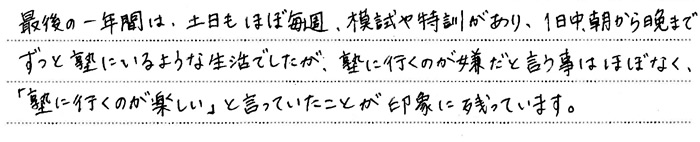 最後の一年間は、土日もほぼ毎週、模試や特訓があり、1日中、朝から晩まで
ずっと塾にいるような生活でしたが、塾に行くのが嫌だと言う事はほぼなく、
「塾に行くのが楽しい」と言っていたことが印象に残っています。